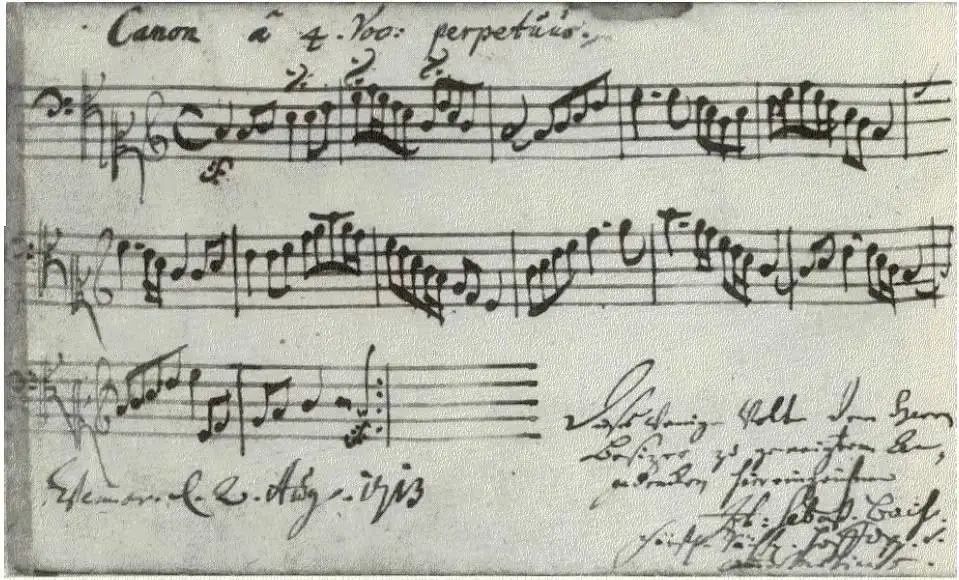 Canon â 4. Voc: perpetuus.
Weimar. d. 2. Aug. 1713
Dieses Wenige Wolte dem Herrn
Besitzer zu geneigtem An-
gedencken hier einzeichnen
Joh: Sebast. Bach.